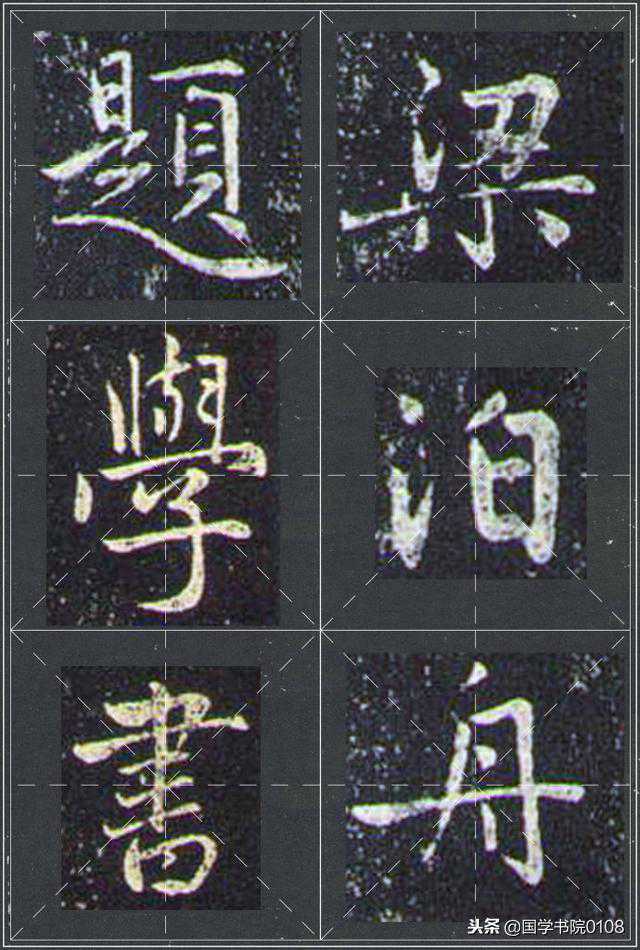 梁泊舟
題學書
头条 @国学书院0108